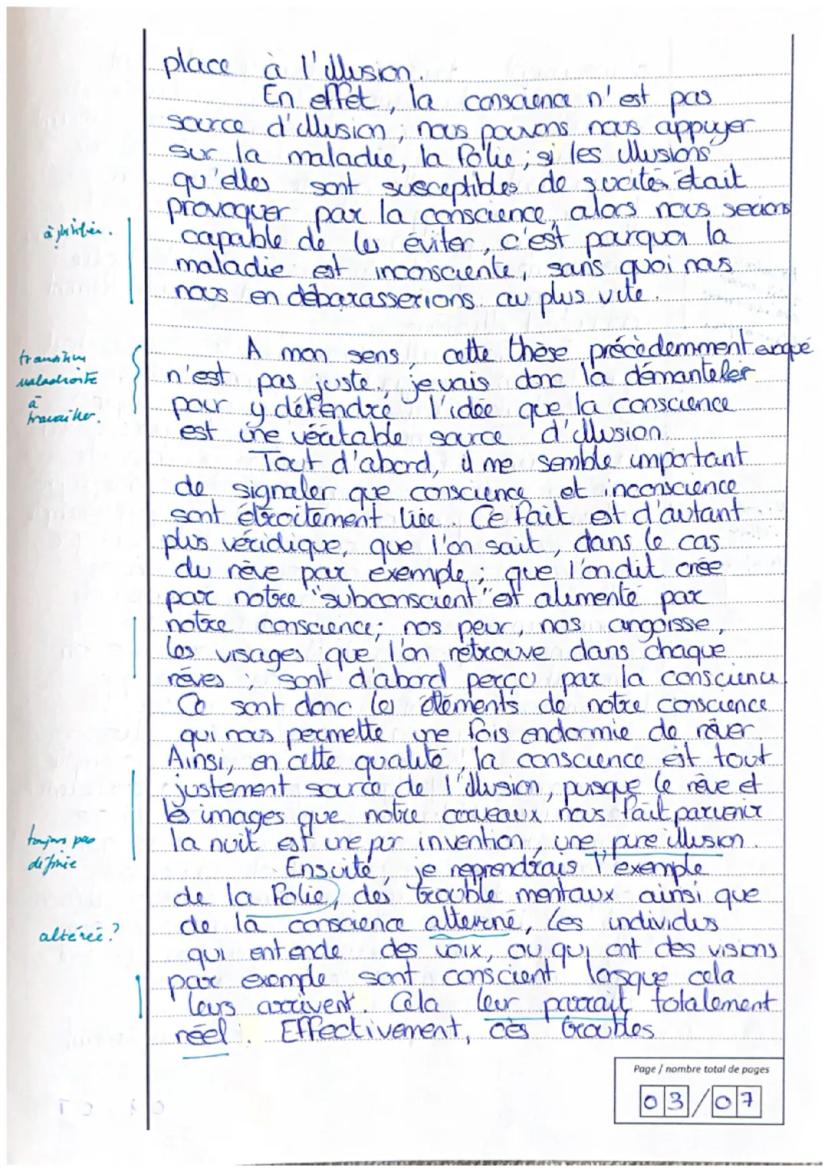 place à l'illusion.
En effet, la conscience n'est pas
source d'illusion, nous pouvons nous appuyer
sur la maladie, la folie ; si les illusions
qu'elles sont susceptibles de sucités était
provoquer par la conscience, alors nous serions
à justifier.
capable de les éviter, c'est parquoi la
maladie est inconsciente, sans quoi nous
nous en débarasserions au plus vite.
À mon sens, cette thèse précèdemment evoqué
transition
maladroite
à
travailler.
n'est pas juste, je vais donc la démanteler
pour y défendre l'idée que la conscience
est une véritable source d'illusion.
Tout d'abord, il me semble important
de signaler que conscience et inconscience
sont étroitement liée. Ce fait est d'autant
plus véridique, que l'on sait, dans le cas
du rêve par exemple, que l'on dit crée
par notre "subconscient" est alimenté par
notre conscience ; nos peur, nos angoisse,
les visages que l'on retrouve dans chaque
rêves, sont d'abord perçu par la conscience.
Ce sont donc les éléments de notre conscience
qui nous permette une fois endormie de rêver.
Ainsi, en cette qualité, la conscience est tout
justement source de l'illusion, pusque le rêve et
les images que notre cerveaux nous fait parvenir
la nuit est une pur invention, une pure illusion.
toujours pas
définie
Ensuite, je reprendrais l'exemple
de la folie, des trouble mentaux ainsi que
de la conscience alterné, les individus
altérée ?
qui entende des voix, ou qui ont des visions
par exemple sont conscient lorsque cela
leurs arrivent. Cela leur parrait totalement
réel. Effectivement, ces troubles
Page / nombre total de pages
03/07